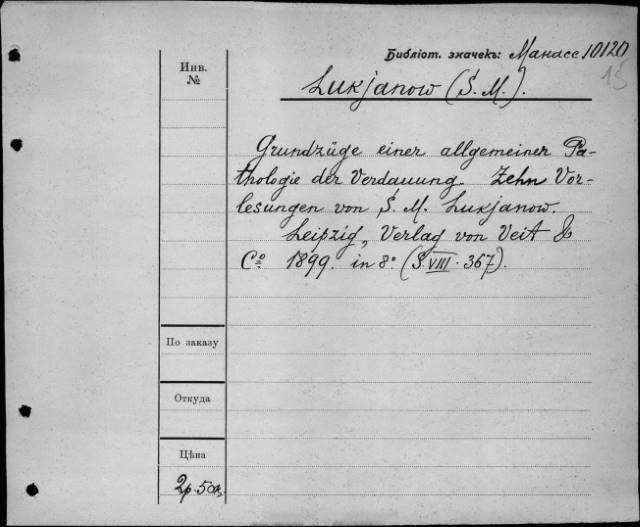 Библіот. значекъ: Манасс 10120
15
Инв.
№
Lukjanow (S. M.).
Grundzüge einer allgemeiner Pa-
thologie der Verdauung. Zehn Vor-
lesungen von S. M. Lukjanow.
Leipzig, Verlag von Veit &
Cº 1899. in 8º (S. VIII. 367).
По заказу
Откуда
Цѣна
2р. 50к.